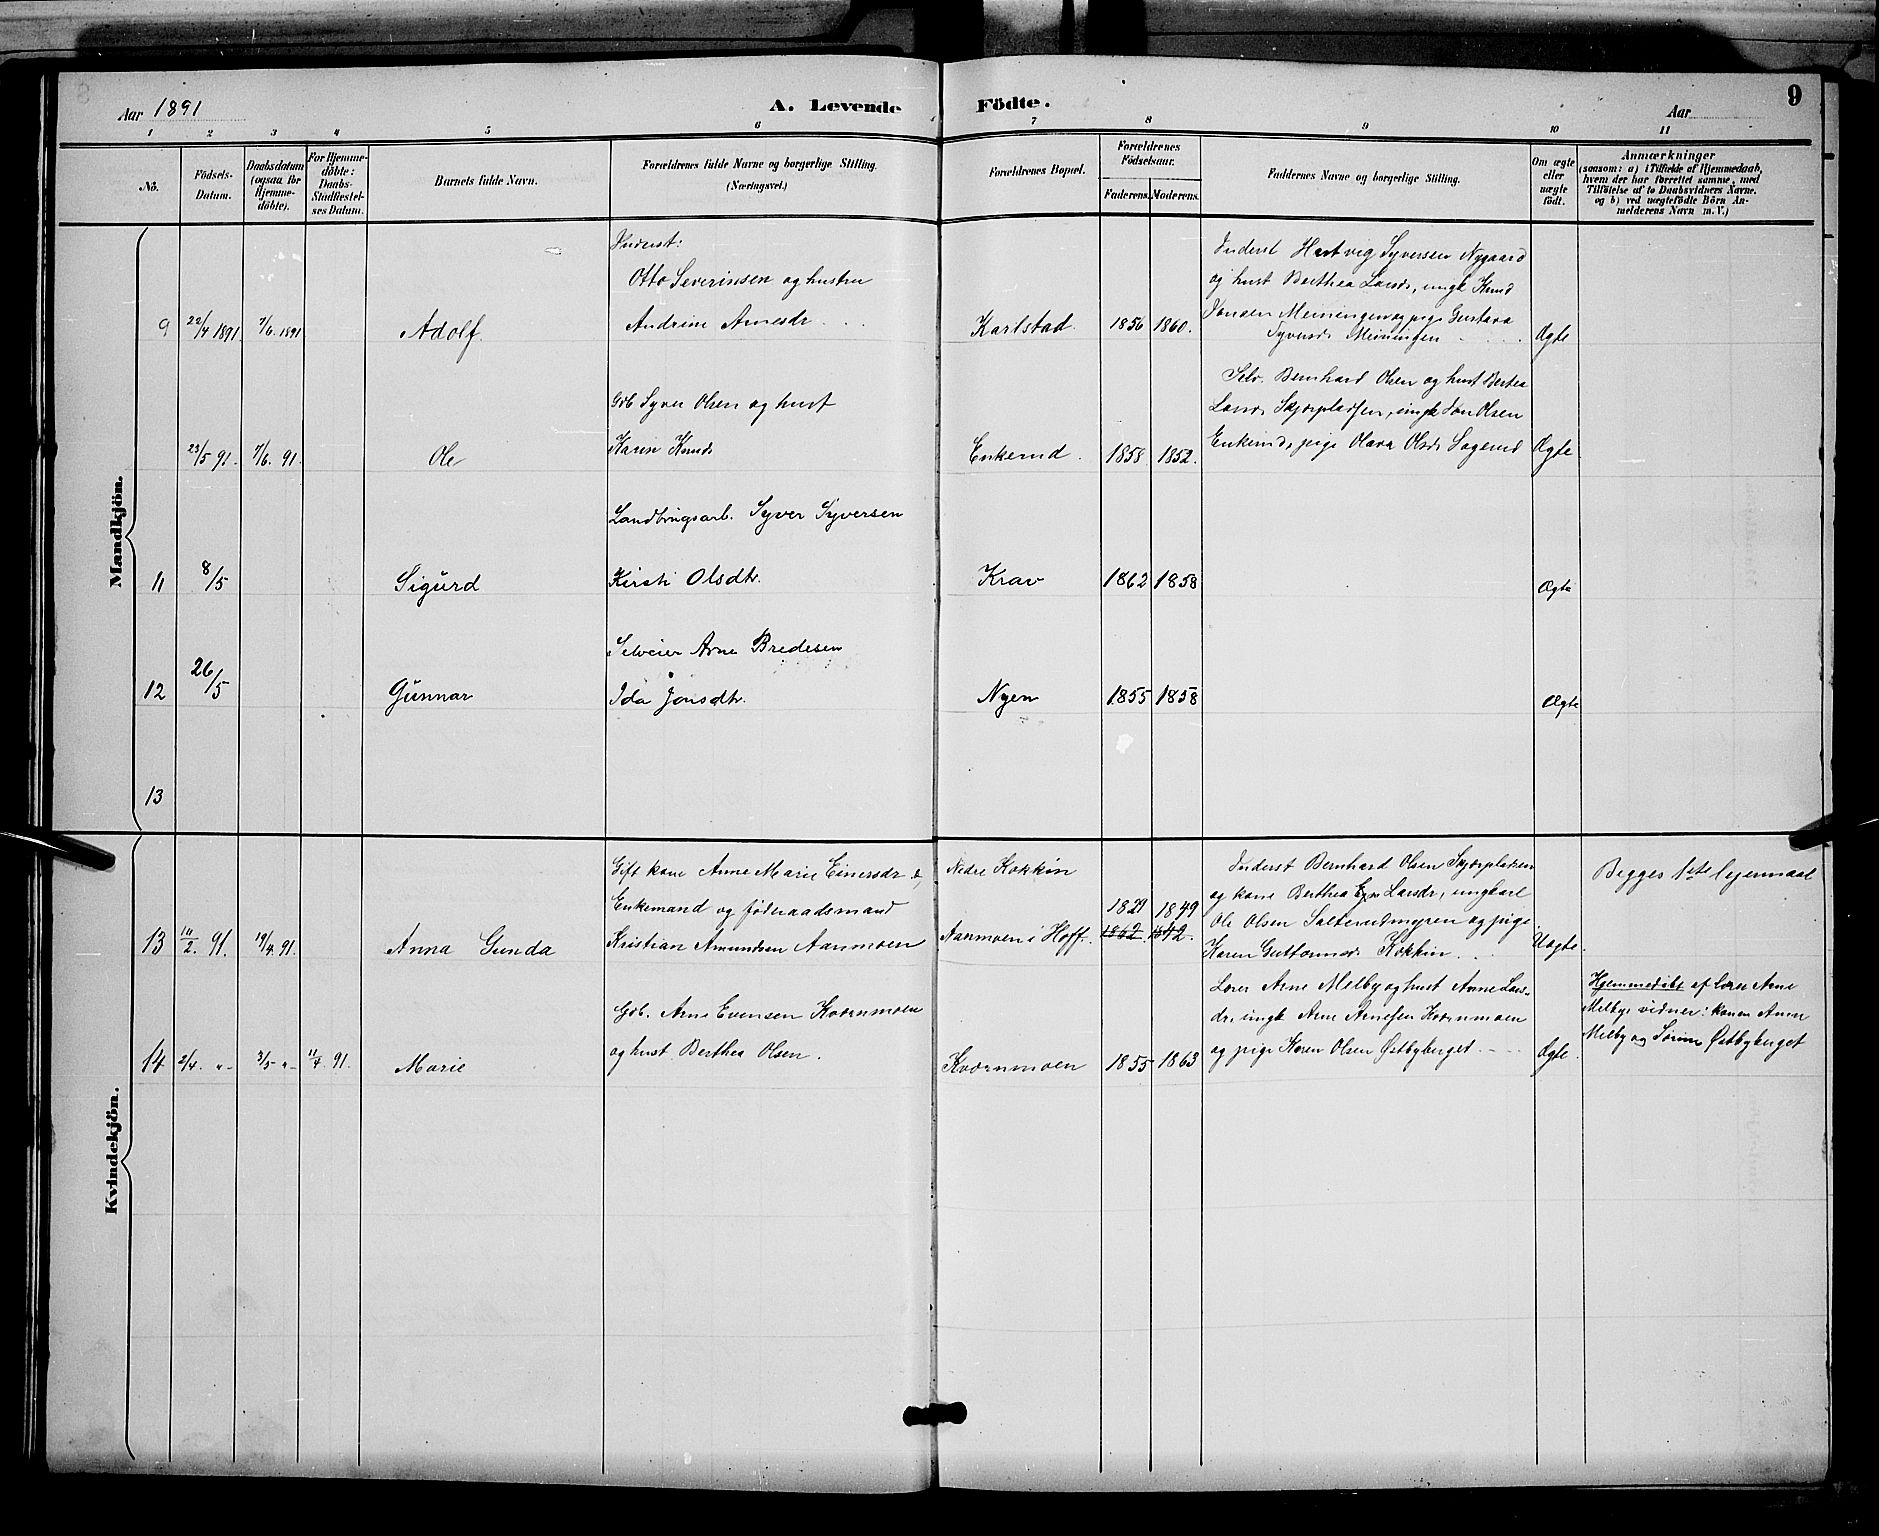 Aar 1891
A. Levende Födte.
Aar
9
1 2 3 4 5 6 7 8 9 10 11
No.
Födsels-Datum.
Daabsdatum (ogsaa for Hjemme-döbte).
For Hjemme-döbte: Daabs-Stadfæstel-ses Datum.
Barnets fulde Navn.
Forældrenes fulde Navne og borgerlige Stilling. (Næringsvei.)
Forældrenes Bopæl.
Forældrenes Födselsaar.
Faderens. Moderens.
Faddernes Navne og borgerlige Stilling.
Om ægte eller uægte födt.
Anmærkninger
(saasom: a) i Tilfælde af Hjemmedaab, hvem der har forrettet samme, med Tilföielse af to Daabsvidners Navne. og b) ved uægtefödte Börn An-melderens Navn m. V.)
Mandkjön.
Inderst:
Otto Severinsen og hustru
Andrine Arnesdr
9 22/4 1891. 7/6. 1891 Adolf. Karlstad. 1856 1860.
Inderst Hartvig Syversen Nygaard
og hust Berthea Larsdr, ungk Knud
Jonsen Meiningen og pige Gustava
Syversdr Meiningen
Ægte
Gdb Syver Olsen og hust
Karen Knudsdr
23/5 91. 7/6. 91. Ole Enkerud. 1858 1852.
Selv. Bernhard Olsen og hust Bertea
Larsdr Skjærpladsen, ungk Jon Olsen
Enkerud, pige Olava Olsdr Sagerud
Ægte
Landbrugsarb. Syver Syversen
Kirsti Olsdtr.
11 8/5 Sigurd Krav 1862 1858 Ægte
Selveier Arne Bredesen
Ida Jonsdtr.
12 26/5 Gunnar Nyen 1855 1858 Ægte
13
Kvindekjön.
Gift kone Anne Marie Einersdr &
Enkemand og föderaadsmand
Kristian Amundsen Aanmoen
13 10/2. 91. 19/4. 91. Anna Gunda
Nedre Kokkin
Aanmoen i Hoff.
1829 1849
1862. 1842.
Inderst Bernhard Olsen Skjærpladsen
og kone Berthea Larsdr, ungkarl
Ole Olsen Sæterudmyren og pige
Karen Guttormsdr Kokkin
Uægte
Begges 1ste leiermaal
Gdb. Arne Evensen Kværnmoen
og hust Berthea Olsen.
14 2/4. "- 3/5 "- 11/4. 91. Marie Kværnmoen 1855 1863
Lærer Arne Melby og hust Anne Lars-
dr, ungk Arne Arnesen Kværnmoen
og pige Karen Olsen Østbyberget
Ægte.
Hjemmedöbt af lærer Arne
Melby, vidner: konen Anne
Melby og Sörine Østbyberget